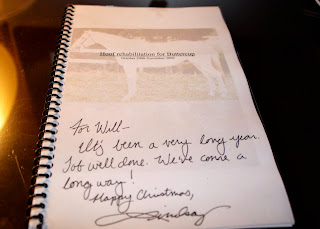 Hoof rehabilitation for Buttercup
For Will-
It's been a very long year.
Job well done. We've come a
long way!
Happy Christmas,
Lindsay